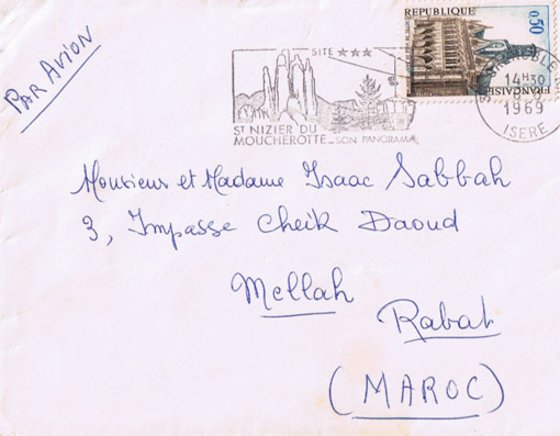 PAR AVION
SITE ★★★
ST NIZIER DU
MOUCHEROTTE _ SON PANORAMA
REPUBLIQUE
0,50
FRANCAISE
GRENOBLE
14H30
1969
ISERE
Monsieur et Madame Isaac Sabbah
3, Impasse Cheik Daoud
Mellah
Rabat
(MAROC)